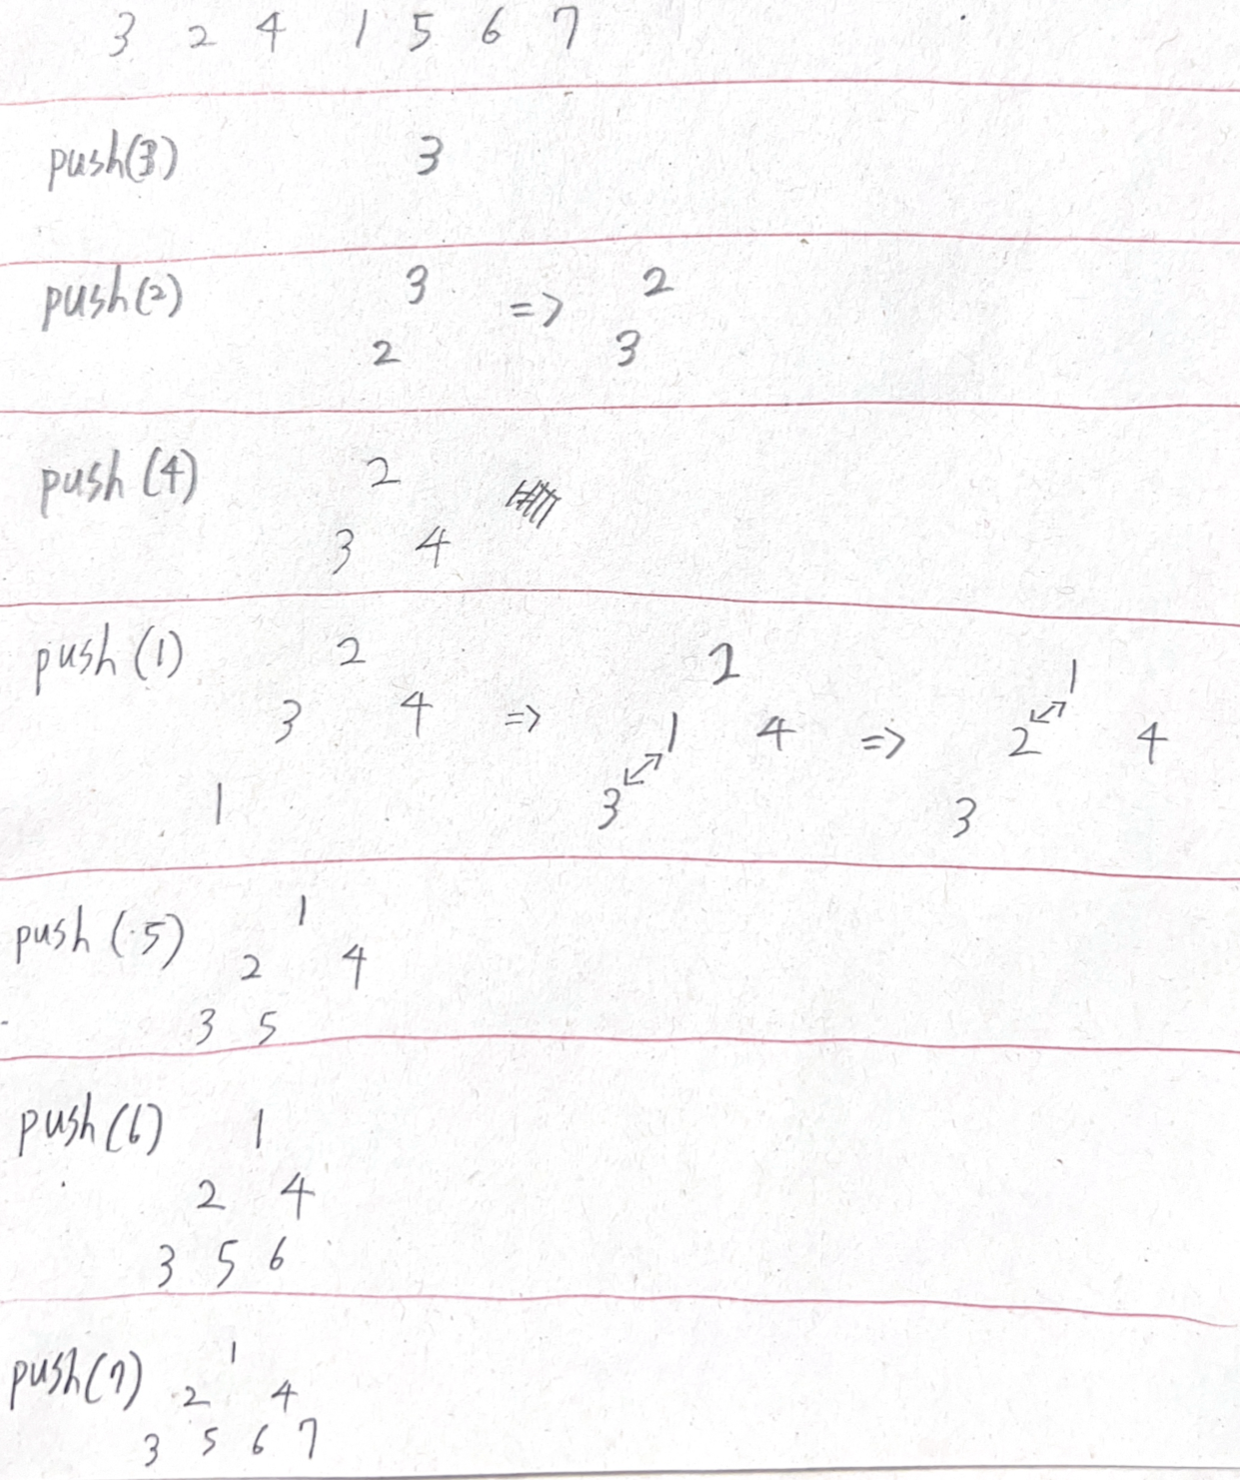 3 2 4 1 5 6 7
push(3) 3
push(2) 3 => 2
2 3
push (4) 2
3 4
push (1) 2 2 1
3 4 => 1 4 => 2 4
1 3 3
push (.5) 1
2 4
3 5
push(6) 1
2 4
3 5 6
push(7) 1
2 4
3 5 6 7